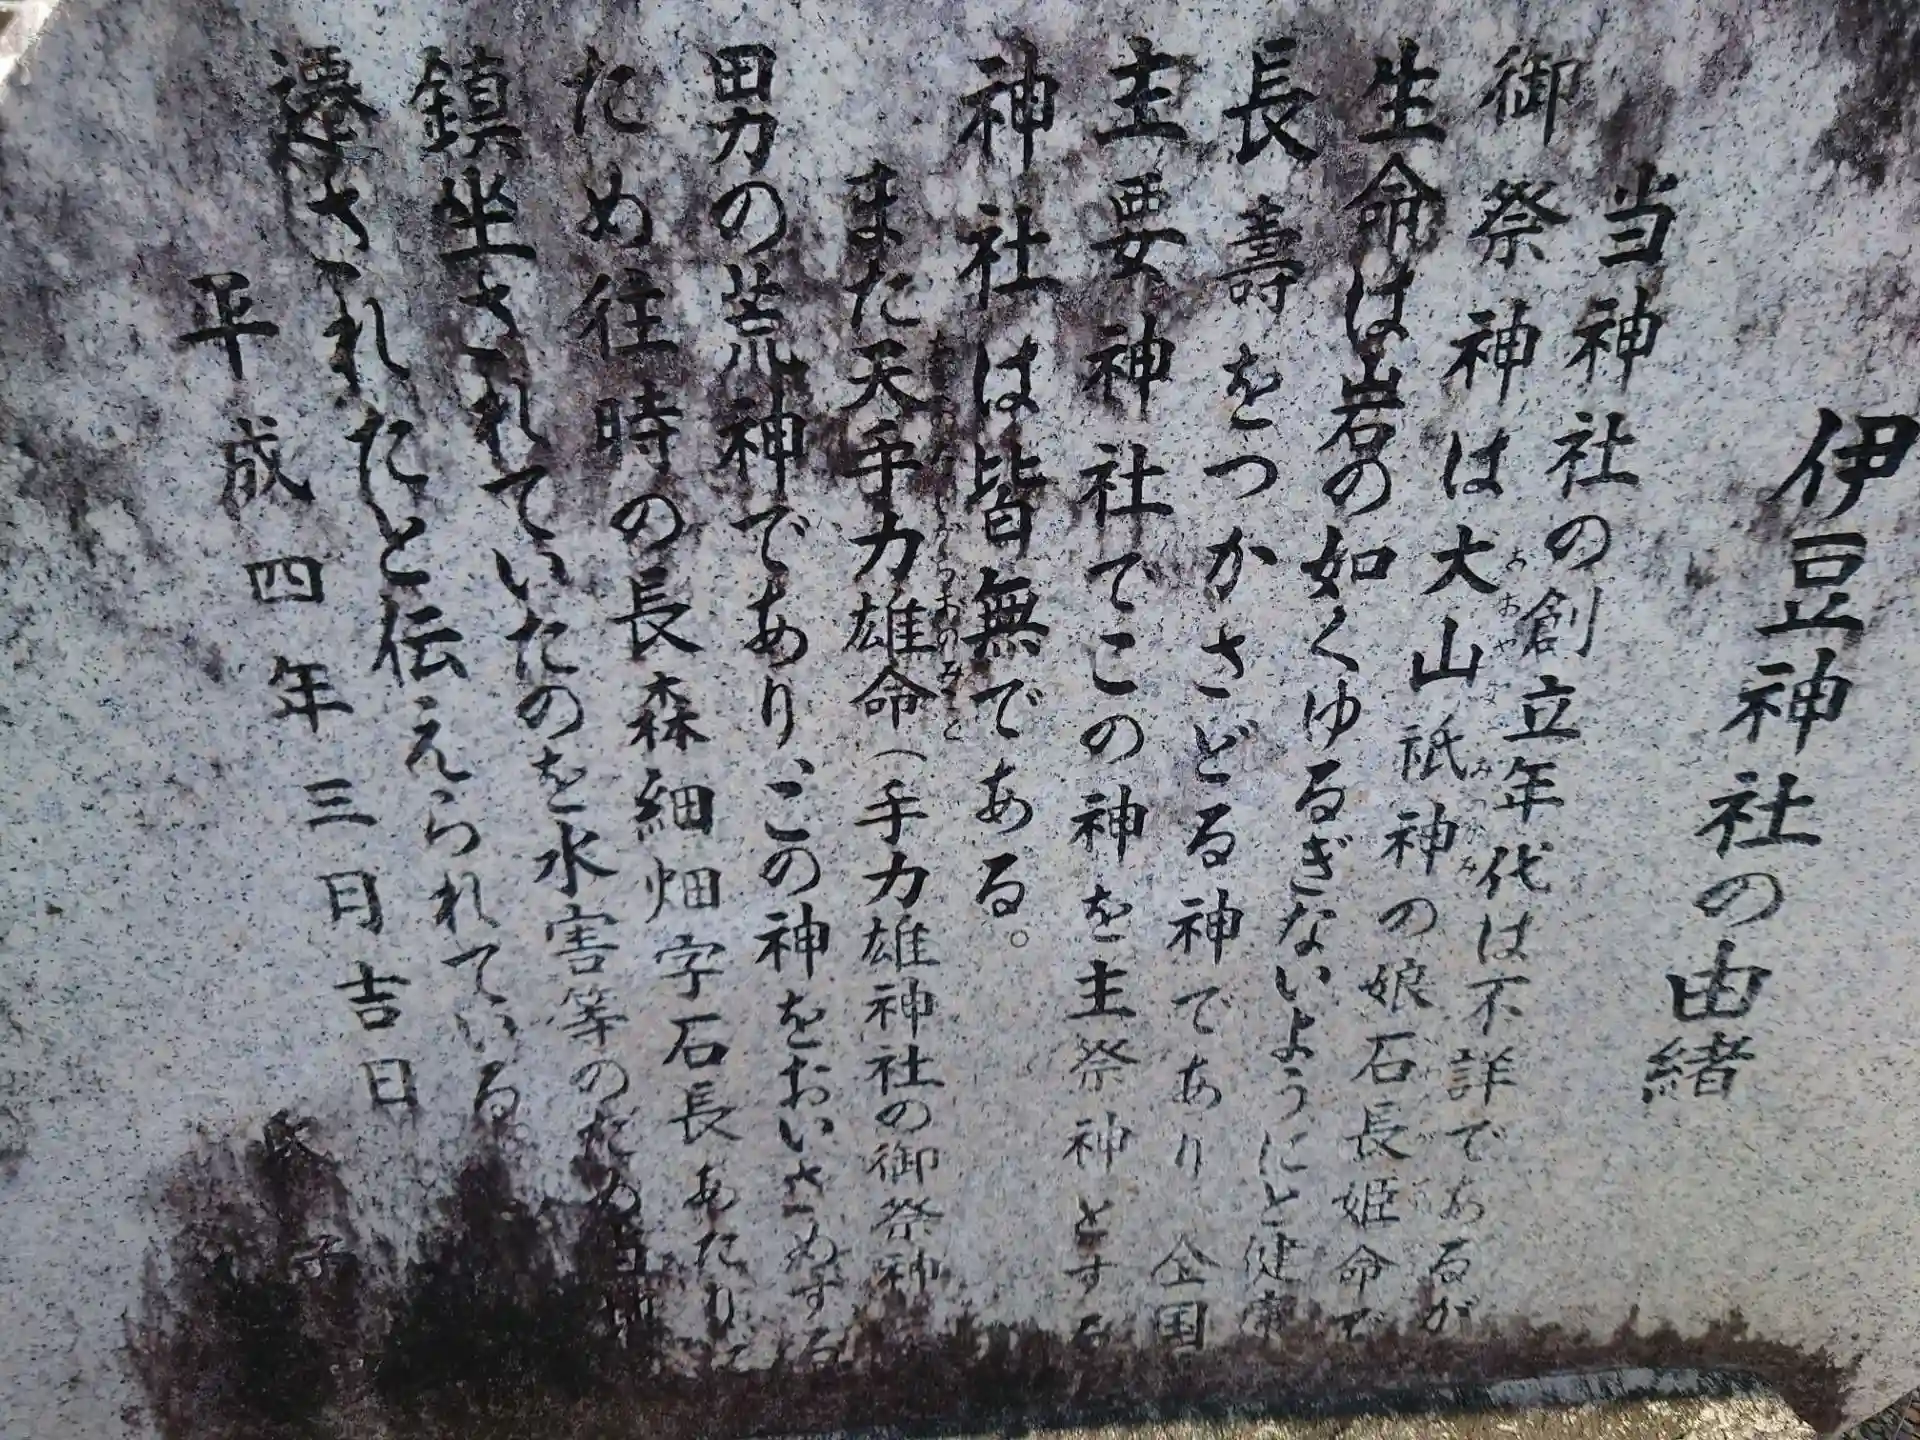 伊豆神社の由緒
当神社の創立年代は不詳であるが
御祭神は大山祇神の娘石長姫命で
おおやまつみのかみ
生命は岩の如くゆるぎないようにと健康
長壽をつかさどる神であり 全国
主要神社でこの神を主祭神とする
神社は皆無である。
また天手力雄命(手力雄神社の御祭神
あめのたぢからおのみこと
男の荒神であり、この神をおいさめする
ため往時の長森細畑字石長あたりに
鎮坐されていたのを水害等のため当地
遷されたと伝えられている。
平成四年三月吉日
氏子